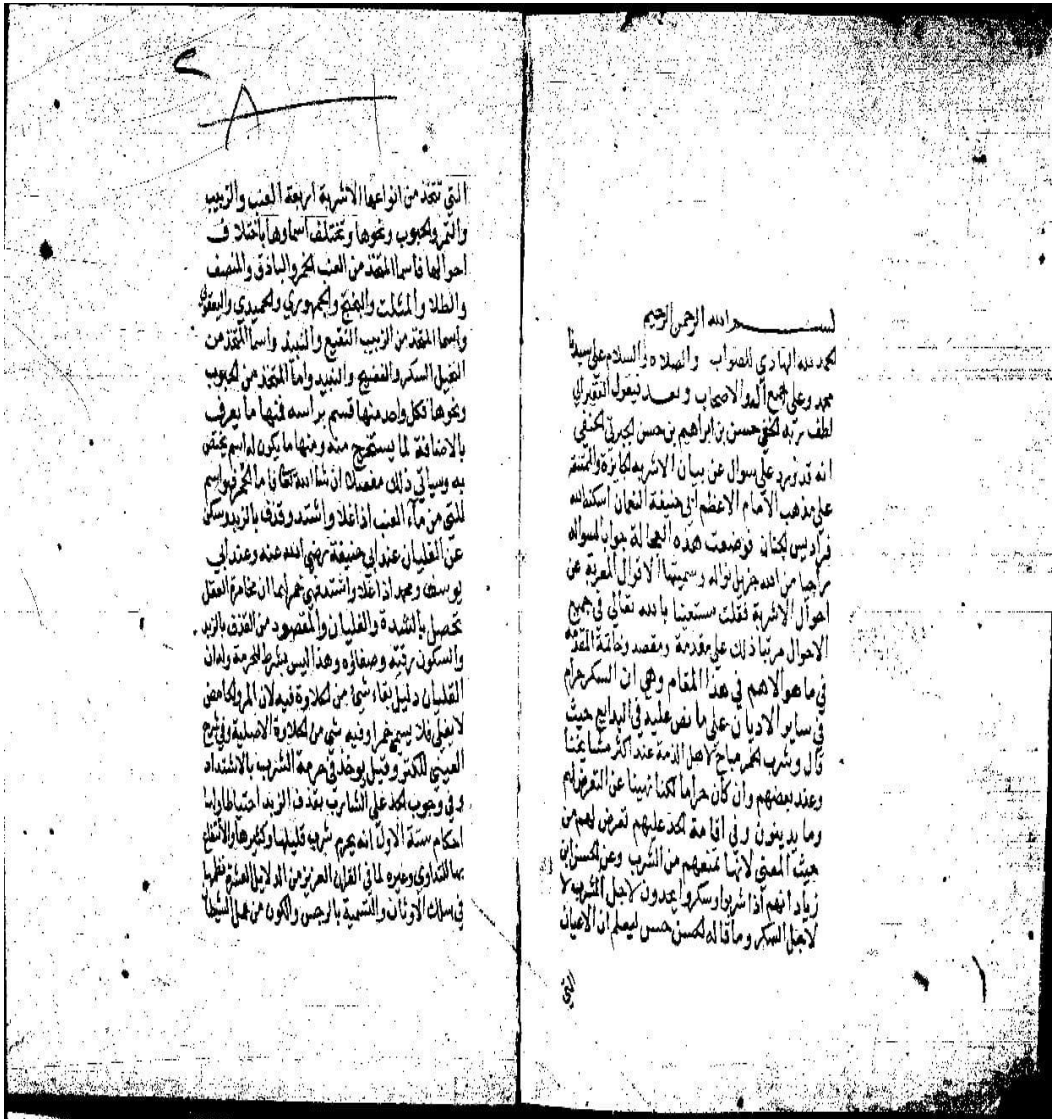 بسم الله الرحمن الرحيم
الحمد لله الهادي للصواب والصلاه والسلام علي سيدنا
محمد وعلي جميع آله والاصحاب وبعد فيقول الفقير الي
لطف ربه الخفي حسن بن ابراهيم بن حسن الجبرتي الحنفي
انه قد ورد علي سوال عن بيان الاشربه الجايزة
علي مذهب الامام الاعظم ابي حنيفة النعمان اسكنه الله
فراديس الجنان فوضعت هذه العجالة جوابا لسواله
راجيا من الله جزيل نواله وسميتها الاقوال المعربة عن
احوال الاشربة فقلت مستعينا بالله تعالي في جميع
الاحوال مرتبا ذلك علي مقدمة ومقصد وخاتمة المقدمة
في ما هو الاهم في هذا المقام وهي ان السكر حرام
في ساير الاديان علي ما نص عليه في البدايع حيث
قال وشرب الخمر مباح لاهل الذمة عند اكثر مشايخنا
وعند بعضهم وان كان حراما لكنا نهينا عن التعرض لهم
وما يدينون وفي اقامة الحد عليهم تعرض لهم من
حيث المعني لانها تمنعهم من الشرب وعن الحسن ابن
زياد انهم اذا شربوا وسكروا يحدون لاجل السكر لا
لاجل الشرب وما قاله الحسن حسن ليعلم ان الاعيان
التي
١
٢
التي تتخذ من انواعها الاشربة اربعة العنب والزبيب
والتمر والحبوب ونحوها وتختلف اسماوها باختلاف
احوالها فاسما المتخذ من العنب الخمر والباذق والمنصف
والطلا والمثلث والبختج والجمهوري والحميدي واليعقوبي
واسما المتخذ من الزبيب النقيع والنبيذ واسما المتخذ من
النخيل السكر والفضيخ والنبيذ واما المتخذ من الحبوب
ونحوها فكل واحد منها قسم براسه فمنها ما يعرف
بالاضافة لما يستخرج منه ومنها ما يكون له اسم يختص
به وسياتي ذلك مفصلا ان شا الله تعالى فاما الخمر فهو اسم
للني من مآء العنب اذا غلا واشتد وقذف بالزبد وسكن
عن الغليان عند ابي حنيفة رضي الله عنه وعند ابي
يوسف ومحمد اذا غلا واشتد فهي خمر لهما ان مخامرة العقل
تحصل بالشدة والغليان والمقصود من القذف بالزبد
والسكون رقته وصفاؤه وهذا ليس بشرط للحرمة وله ان
الغليان دليل بقاء شيء من الحلاوة فيه لان المر والحامض
لا يغلي فلا يسمي خمرا وفيه شي من الحلاوة الاصلية وفي شرح
العيني للكنز وقيل يوخذ في حرمة الشرب بالاشتداد
وفي وجوب الحد علي الشارب بقذف الزبد احتياطا ولها
احكام ستة الاول انه يحرم شرب قليلها وكثيرها والانتفاع
بها للتداوي وغيره لما في القران العزيز من الدلايل العشرة نظمها
في سلك الاوثان والتسمية بالرجس والكون من عمل الشيطان